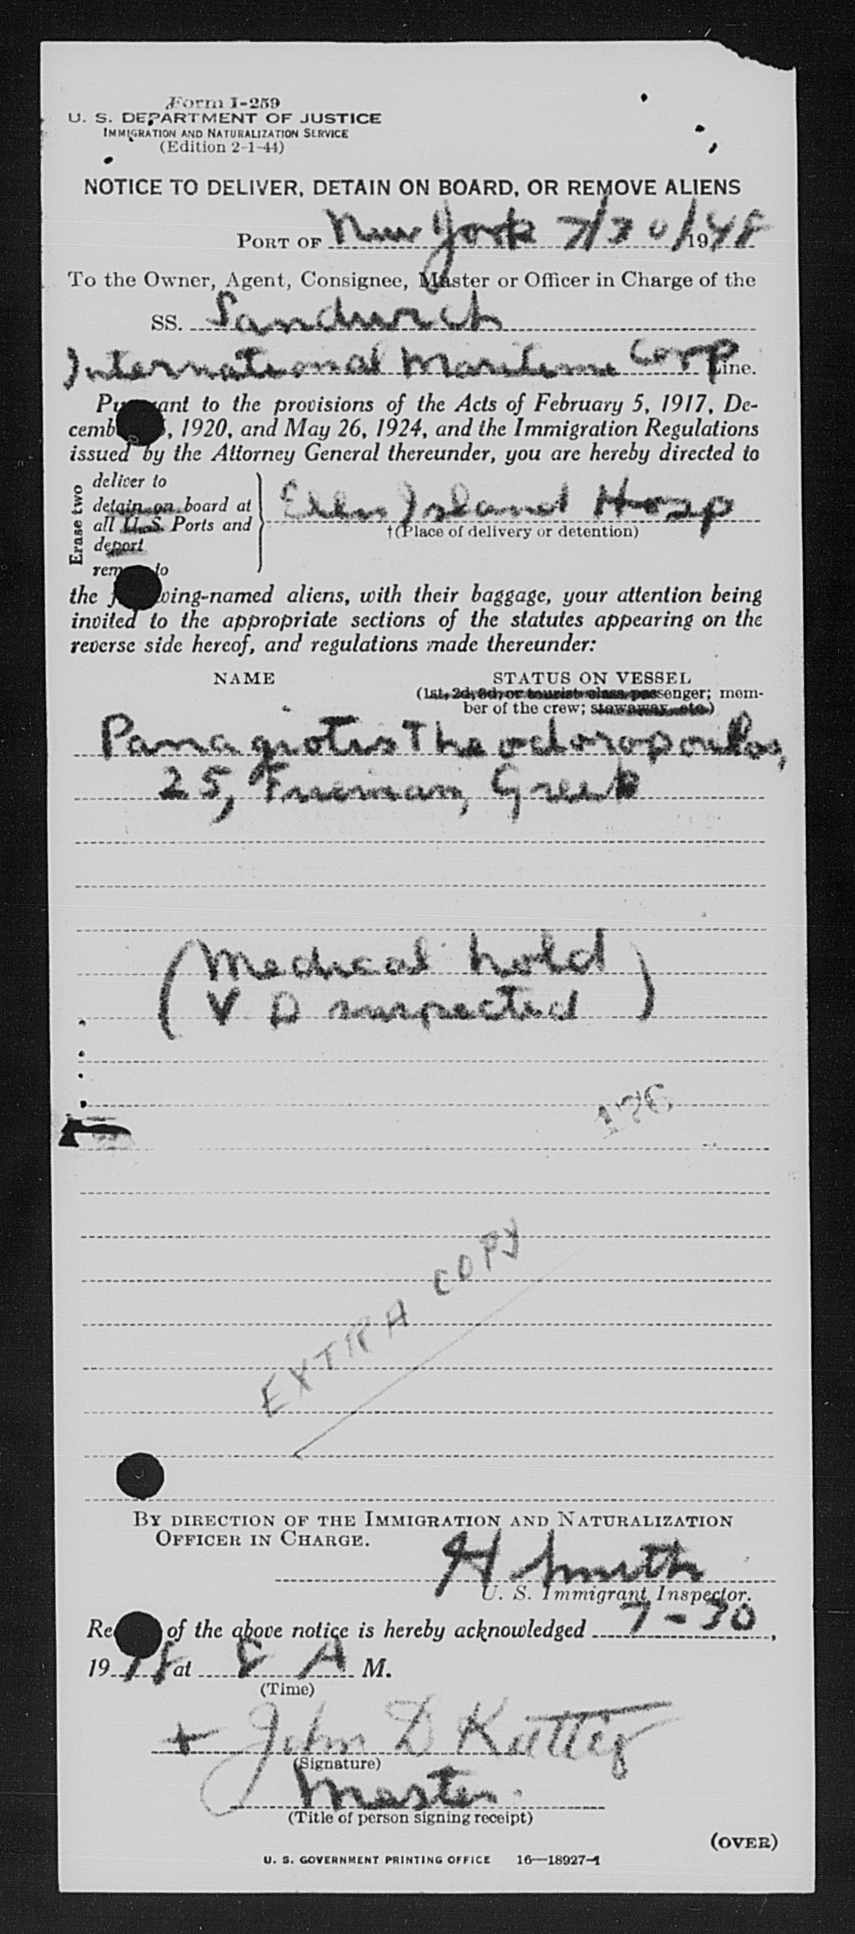 Form I-259
U. S. DEPARTMENT OF JUSTICE
IMMIGRATION AND NATURALIZATION SERVICE
(Edition 2-1-44)
NOTICE TO DELIVER, DETAIN ON BOARD, OR REMOVE ALIENS
PORT OF New York 7/30/1948
To the Owner, Agent, Consignee, Master or Officer in Charge of the
SS. Sandwich
International Maritime Corp Line.
Pursuant to the provisions of the Acts of February 5, 1917, De-
cember , 1920, and May 26, 1924, and the Immigration Regulations
issued by the Attorney General thereunder, you are hereby directed to
Erase two
deliver to
detain on board at
all U.S. Ports and
deport
remove to
Ellis Island Hosp
†(Place of delivery or detention)
the following-named aliens, with their baggage, your attention being
invited to the appropriate sections of the statutes appearing on the
reverse side hereof, and regulations made thereunder:
NAME STATUS ON VESSEL
(1st, 2d, 3d, or tourist class passenger; mem-
ber of the crew; stowaway, etc.)
Panagiotis Theodoropoulos,
25, Fireman, Greek
(Medical hold
V D suspected)
176
EXTRA COPY
BY DIRECTION OF THE IMMIGRATION AND NATURALIZATION
OFFICER IN CHARGE.
H Smith
U. S. Immigrant Inspector.
Receipt of the above notice is hereby acknowledged 7-30,
1948 at 8 A M.
(Time)
+ John D
(Signature)
Master
(Title of person signing receipt)
(OVER)
U. S. GOVERNMENT PRINTING OFFICE 16—18927-1